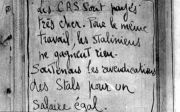 des CRS sont payés
très cher. Tous le même
travail, les staliniens
ne gagnent rien.
Soutenons les revendications
des Stals pour un
salaire égal.